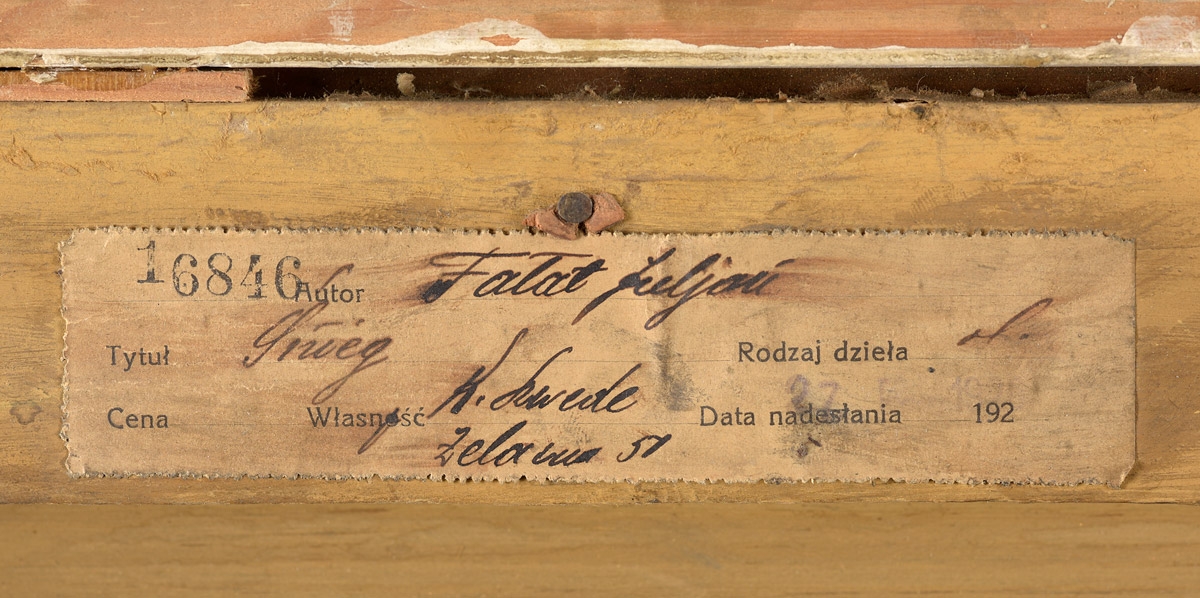 16846 Autor Fałat Juljan
Tytuł Śnieg Rodzaj dzieła ol.
Cena Własność K. Szwede Data nadesłania 192
Żelazna 51